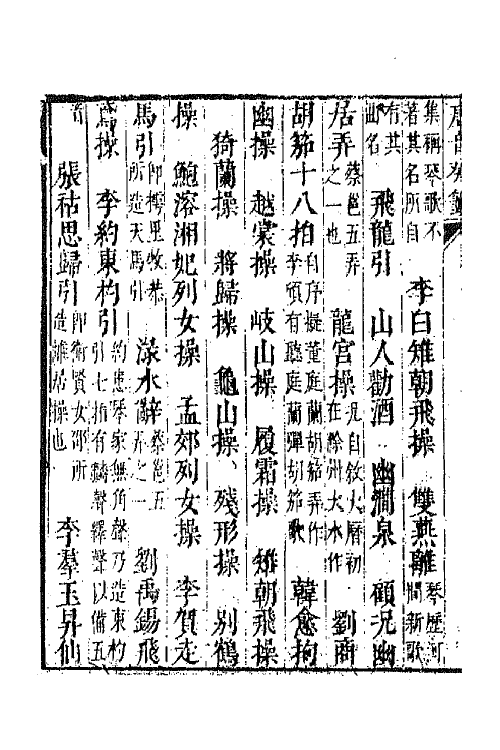 集稱琴歌不
著其名所自　李白雉朝飛操　雙燕離琴歷河
間新歌
有其
曲名　飛龍引　山人勸酒　幽澗泉　顧況幽
居弄蔡邕五弄
之一也　龍宮操況自敘大曆初
在滁州大水作　劉商
胡笳十八拍自序擬董庭蘭胡笳弄作
李頎有聽庭蘭彈胡笳歌　韓愈拘
幽操　越裳操　岐山操　履霜操　雉朝飛操
猗蘭操　將歸操　龜山操　殘形操　別鶴
操　鮑溶湘妃列女操　孟郊列女操　李賀走
馬引即樗里牧恭
所造天馬引　淥水辭蔡邕五
弄之一　劉禹錫飛
鳶操　李約東杓引約患琴家無角聲乃造東杓
引七拍有麟聲繹聲以備五
音　張祜思歸引即衛賢女邵所
造離居操也　李羣玉昇仙